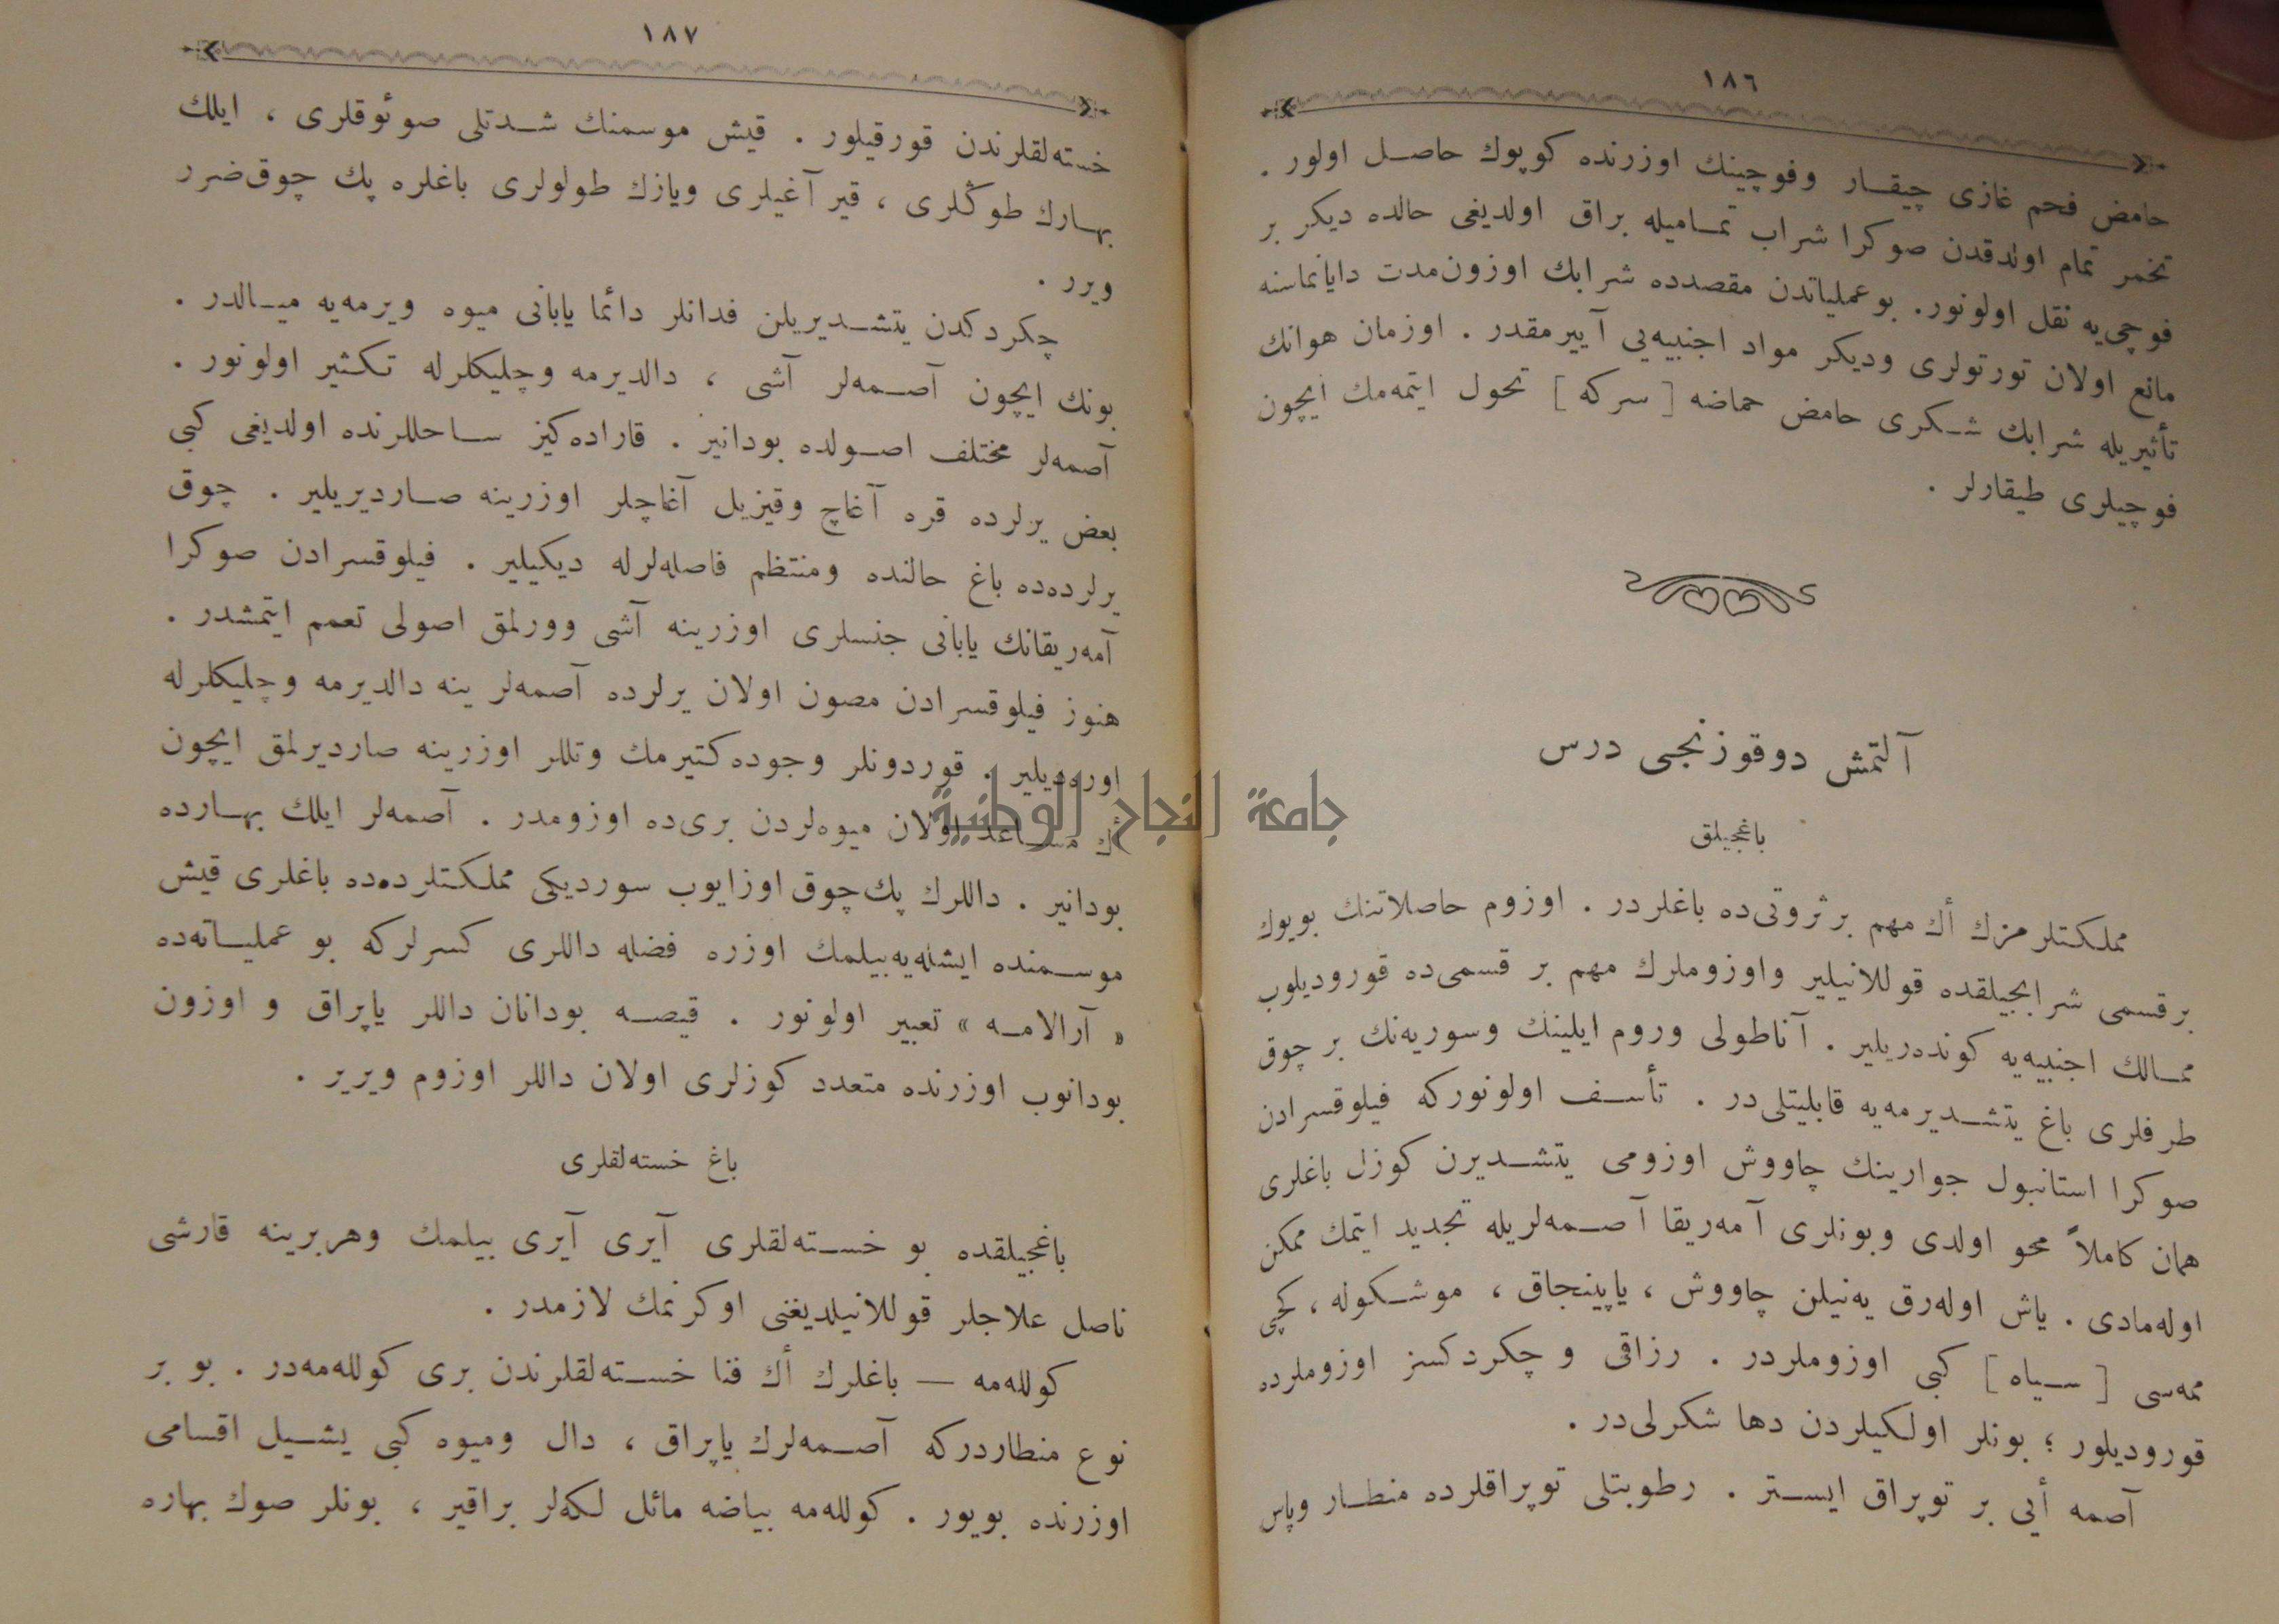 ١٨٦
حامض فحم غازى چيقار وفوچينك اوزرنده كوپوك حاصل اولور .
تخمر تمام اولدقدن صوكرا شراب تماميله براق اولديغى حالده ديكر بر
فوچى‌يه نقل اولونور. بو عملياتدن مقصدده شرابك اوزون‌مدت دايانماسنه
مانع اولان تورتولرى وديكر مواد اجنبيه‌يى آييرمقدر . اوزمان هوانك
تأثيريله شرابك شكرى حامض حماضه [ سركه ] تحول ايتمه‌مك ايچون
فوچيلرى طيقارلر .
آلتمش دوقوزنجى درس
باغجيلق
مملكتلرمزك أك مهم بر ثروتى‌ده باغلردر . اوزوم حاصلاتنك بويوك
برقسمى شرابجيلقده قوللانيلير واوزوملرك مهم بر قسمى‌ده قوروديلوب
ممالك اجنبيه‌يه كونده‌ريلير . آناطولى وروم ايلينك وسوريه‌نك بر چوق
طرفلرى باغ يتشديرمه‌يه قابليتلى‌در . تأسف اولونوركه فيلوقسرادن
صوكرا استانبول جوارينك چاووش اوزومى يتشديرن كوزل باغلرى
همان كاملاً محو اولدى وبونلرى آمه‌ريقا آصمه‌لريله تجديد ايتمك ممكن
اوله‌مادى . ياش اوله‌رق يه‌نيلن چاووش ، ياپينجاق ، موشكوله ، كچى
ممه‌سى [ سياه ] كبى اوزوملردر . رزاقى و چكردكسز اوزوملرده
قوروديلور ؛ بونلر اولكيلردن دها شكرلى‌در .
آصمه أيى بر توپراق ايستر . رطوبتلى توپراقلرده منطار وپاس
١٨٧
خسته‌لقلرندن قورقيلور . قيش موسمنك شدتلى صوئوقلرى ، ايلك
بهارك طوڭلرى ، قير آغيلرى ويازك طولولرى باغلره پك چوق‌ضرر
ويرر .
چكردكدن يتشديريلن فدانلر دائما يابانى ميوه ويرمه‌يه ميالدر .
بونك ايچون آصمه‌لر آشى ، دالديرمه وچليكلرله تكثير اولونور .
آصمه‌لر مختلف اصولده بودانير . قاراده‌كيز ساحللرنده اولديغى كبى
بعض يرلرده قره آغاچ وقيزيل آغاچلر اوزرينه صارديريلير . چوق
يرلرده‌ده باغ حالنده ومنتظم فاصله‌لرله ديكيلير . فيلوقسرادن صوكرا
آمه‌ريقانك يابانى جنسلرى اوزرينه آشى وورلمق اصولى تعمم ايتمشدر .
هنوز فيلوقسرادن مصون اولان يرلرده آصمه‌لر ينه دالديرمه وچليكلرله
اوره‌ديلير . قوردونلر وجوده كتيرمك وتللر اوزرينه صارديرلمق ايچون
أك مساعد اولان ميوه‌لردن برى‌ده اوزومدر . آصمه‌لر ايلك بهارده
بودانير . داللرك پك‌چوق اوزايوب سورديكى مملكتلرده‌ده باغلرى قيش
موسمنده ايشله‌يه‌بيلمك اوزره فضله داللرى كسرلركه بو عملياته‌ده
« آرالامه » تعبير اولونور . قيصه بودانان داللر ياپراق و اوزون
بودانوب اوزرنده متعدد كوزلرى اولان داللر اوزوم ويرير .
باغ خسته‌لقلرى
باغجيلقده بو خسته‌لقلرى آيرى آيرى بيلمك وهربرينه قارشى
ناصل علاجلر قوللانيلديغنى اوكرنمك لازمدر .
كولله‌مه — باغلرك أك فنا خسته‌لقلرندن برى كولله‌مه‌در . بو بر
نوع منطاردركه آصمه‌لرك ياپراق ، دال وميوه كبى يشيل اقسامى
اوزرنده بويور . كولله‌مه بياضه مائل لكه‌لر براقير ، بونلر صوك بهاره
جامعة النجاح الوطنية